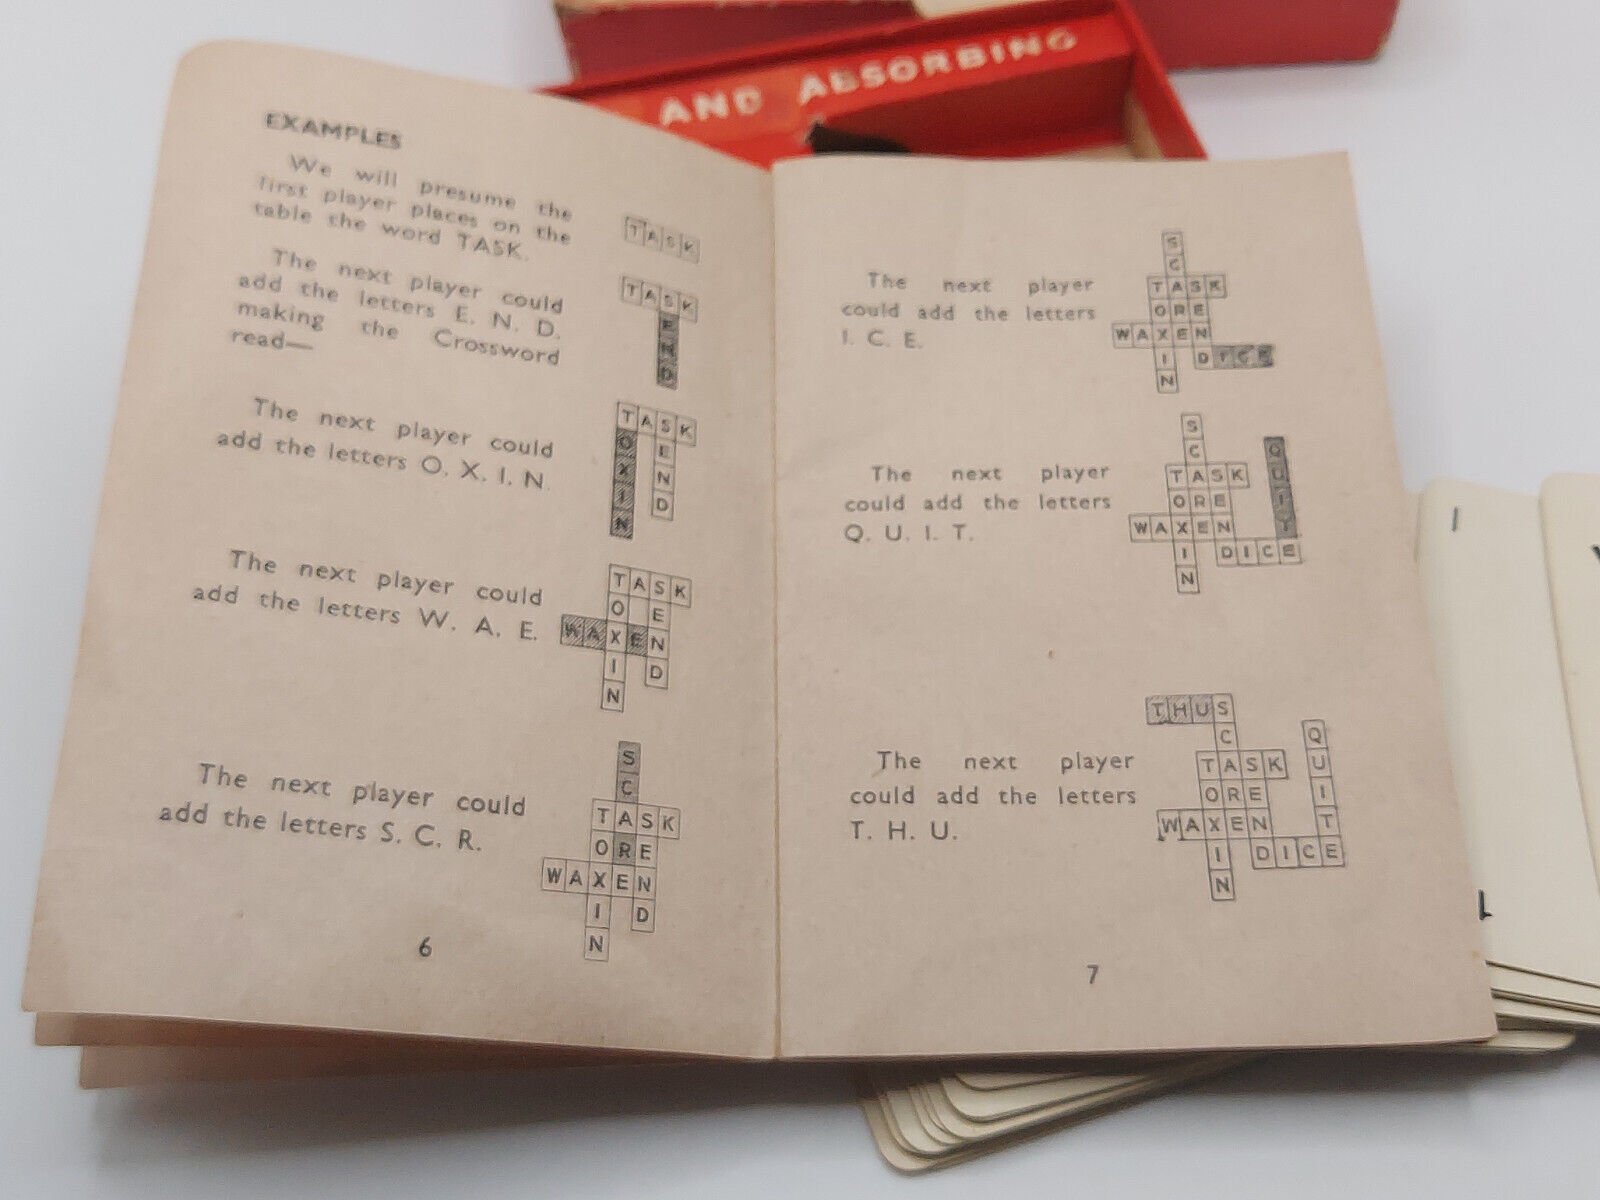 AND ABSORBING
EXAMPLES
We will presume the
first player places on the
table the word TASK.
TASK
The next player could
add the letters E. N. D.
making the Crossword
read—
TASK
E
N
D
The next player could
add the letters O. X. I. N.
TASK
O E
X N
I D
N
The next player could
add the letters W. A. E.
TASK
O E
WAXEN
I D
N
The next player could
add the letters S. C. R.
S
C
TASK
ORE
WAXEN
I D
N
6
The next player
could add the letters
I. C. E.
S
C
TASK
ORE
WAXEN
I DICE
N
The next player
could add the letters
Q. U. I. T.
S Q
C U
TASK I
ORE T
WAXEN
I DICE
N
The next player
could add the letters
T. H. U.
THUS
C Q
TASK U
ORE I
WAXEN T
I DICE
N
7
1